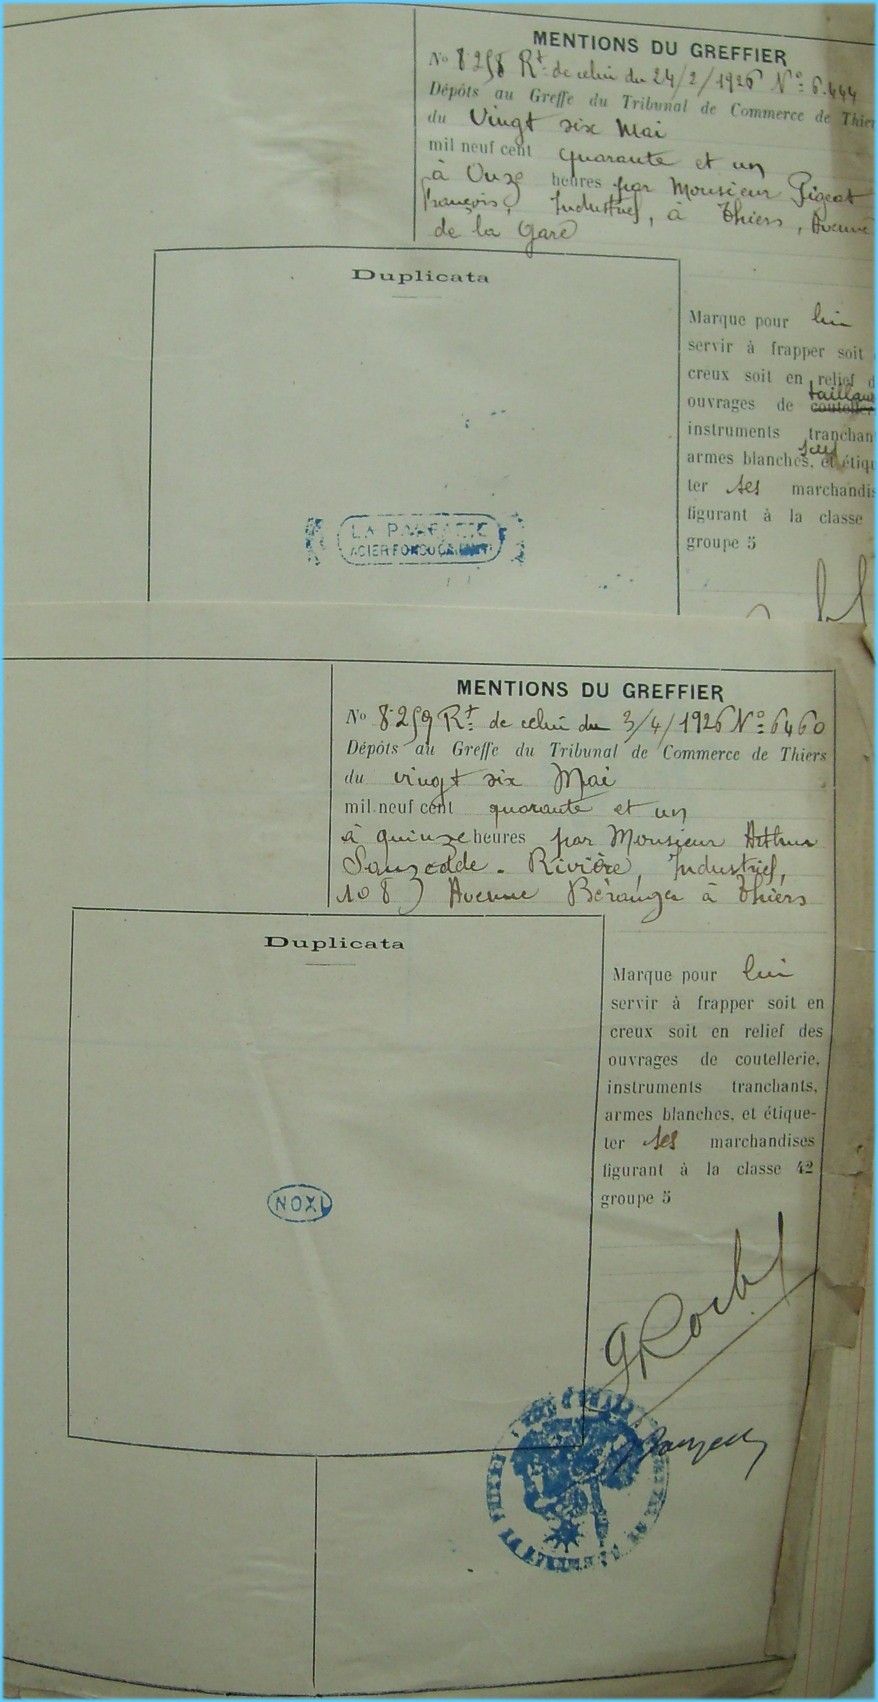 MENTIONS DU GREFFIER
No 8258 Rt de celui du 24/2/1926 No: 6.444
Dépôts au Greffe du Tribunal de Commerce de Thiers
du Vingt six Mai
mil neuf cent quarante et un
à Onze heures par Monsieur Pigeat
François, Industriel, à Thiers, Avenue
de la Gare
Duplicata
Marque pour lui
servir à frapper soit
creux soit en relief d
ouvrages de
instruments tranchan
armes blanches, et étiqu
ter ses marchandis
figurant à la classe
groupe 5
LA
ACIER FONDU
MENTIONS DU GREFFIER
No 8259 Rt de celui du 3/4/1926 No: 6460
Dépôts au Greffe du Tribunal de Commerce de Thiers
du vingt six Mai
mil neuf cent quarante et un
à quinze heures par Monsieur Arthur
Sauzedde - Rivière, Industriel,
108 Avenue Béranger à Thiers
Duplicata
Marque pour lui
servir à frapper soit en
creux soit en relief des
ouvrages de coutellerie,
instruments tranchants,
armes blanches, et étique-
ter ses marchandises
figurant à la classe 42
groupe 5
NOXL